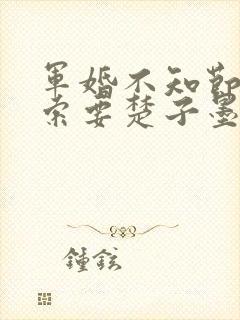 軍婚不知節
索要楚子墨
鍾鉉